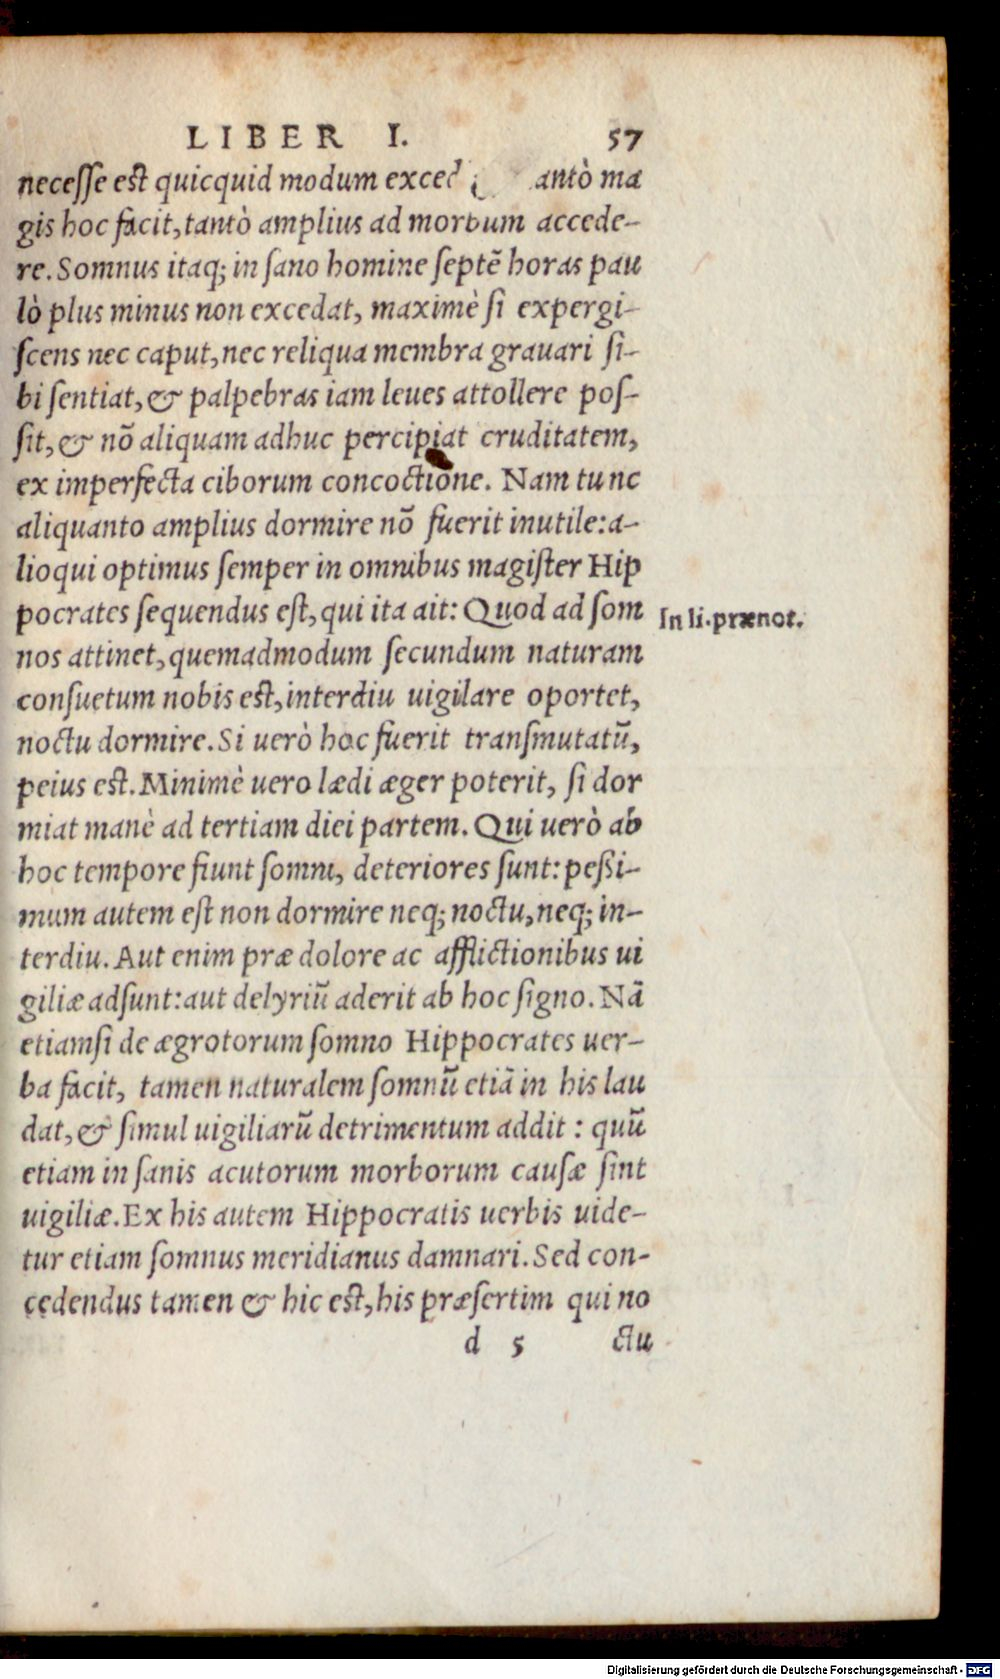 LIBER I. 57
necesse est quicquid modum antò ma
gis hoc facit, tantò amplius ad morbum accede-
re. Somnus itaq; in sano homine septē horas pau
lò plus minus non excedat, maximè si expergi-
scens nec caput, nec reliqua membra grauari si-
bi sentiat, & palpebras iam leues attollere pos-
sit, & nō aliquam adhuc percipiat cruditatem,
ex imperfecta ciborum concoctione. Nam tunc
aliquanto amplius dormire nō fuerit inutile: a-
lioqui optimus semper in omnibus magister Hip
pocrates sequendus est, qui ita ait: Quod ad som
In li. prænot.
nos attinet, quemadmodum secundum naturam
consuetum nobis est, interdiu uigilare oportet,
noctu dormire. Si uerò hoc fuerit transmutatū,
peius est. Minimè uero lædi æger poterit, si dor
miat manè ad tertiam diei partem. Qui uerò ab
hoc tempore fiunt somni, deteriores sunt: peßi-
mum autem est non dormire neq; noctu, neq; in-
terdiu. Aut enim præ dolore ac afflictionibus ui
giliæ adsunt: aut delyriū aderit ab hoc signo. Nā
etiamsi de ægrotorum somno Hippocrates uer-
ba facit, tamen naturalem somnū etiā in his lau
dat, & simul uigiliarū detrimentum addit : quū
etiam in sanis acutorum morborum causæ sint
uigiliæ. Ex his autem Hippocratis uerbis uide-
tur etiam somnus meridianus damnari. Sed con-
cedendus tamen & hic est, his præsertim qui no
d 5 ctu
Digitalisierung gefördert durch die Deutsche Forschungsgemeinschaft - DFG